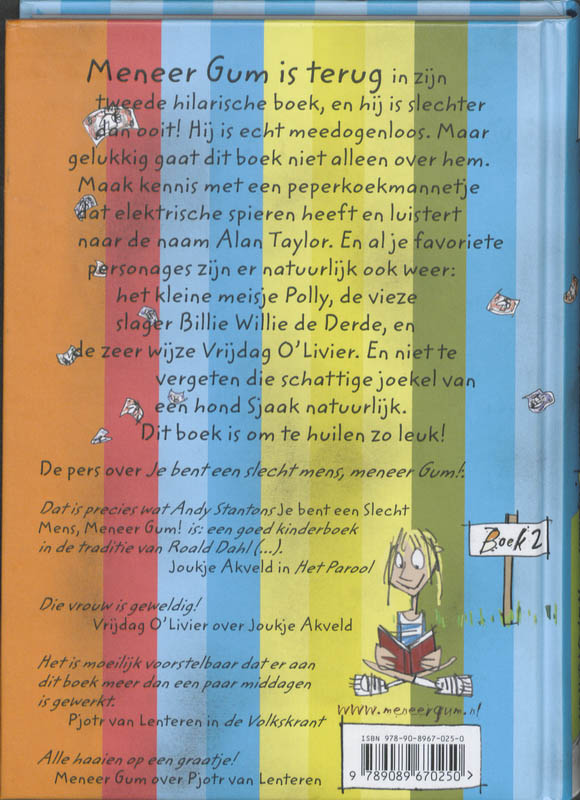 Meneer Gum is terug in zijn
tweede hilarische boek, en hij is slechter
dan ooit! Hij is echt meedogenloos. Maar
gelukkig gaat dit boek niet alleen over hem.
Maak kennis met een peperkoekmannetje
dat elektrische spieren heeft en luistert
naar de naam Alan Taylor. En al je favoriete
personages zijn er natuurlijk ook weer:
het kleine meisje Polly, de vieze
slager Billie Willie de Derde, en
de zeer wijze Vrijdag O'Livier. En niet te
vergeten die schattige joekel van
een hond Sjaak natuurlijk.
Dit boek is om te huilen zo leuk!
De pers over Je bent een slecht mens, meneer Gum!:
Dat is precies wat Andy Stantons Je bent een Slecht
Mens, Meneer Gum! is: een goed kinderboek
in de traditie van Roald Dahl (...).
Joukje Akveld in Het Parool
Boek 2
Die vrouw is geweldig!
Vrijdag O'Livier over Joukje Akveld
Het is moeilijk voorstelbaar dat er aan
dit boek meer dan een paar middagen
is gewerkt.
Pjotr van Lenteren in de Volkskrant
www.meneergum.nl
Alle haaien op een graatje!
Meneer Gum over Pjotr van Lenteren
ISBN 978-90-8967-025-0
9 789089 670250 >